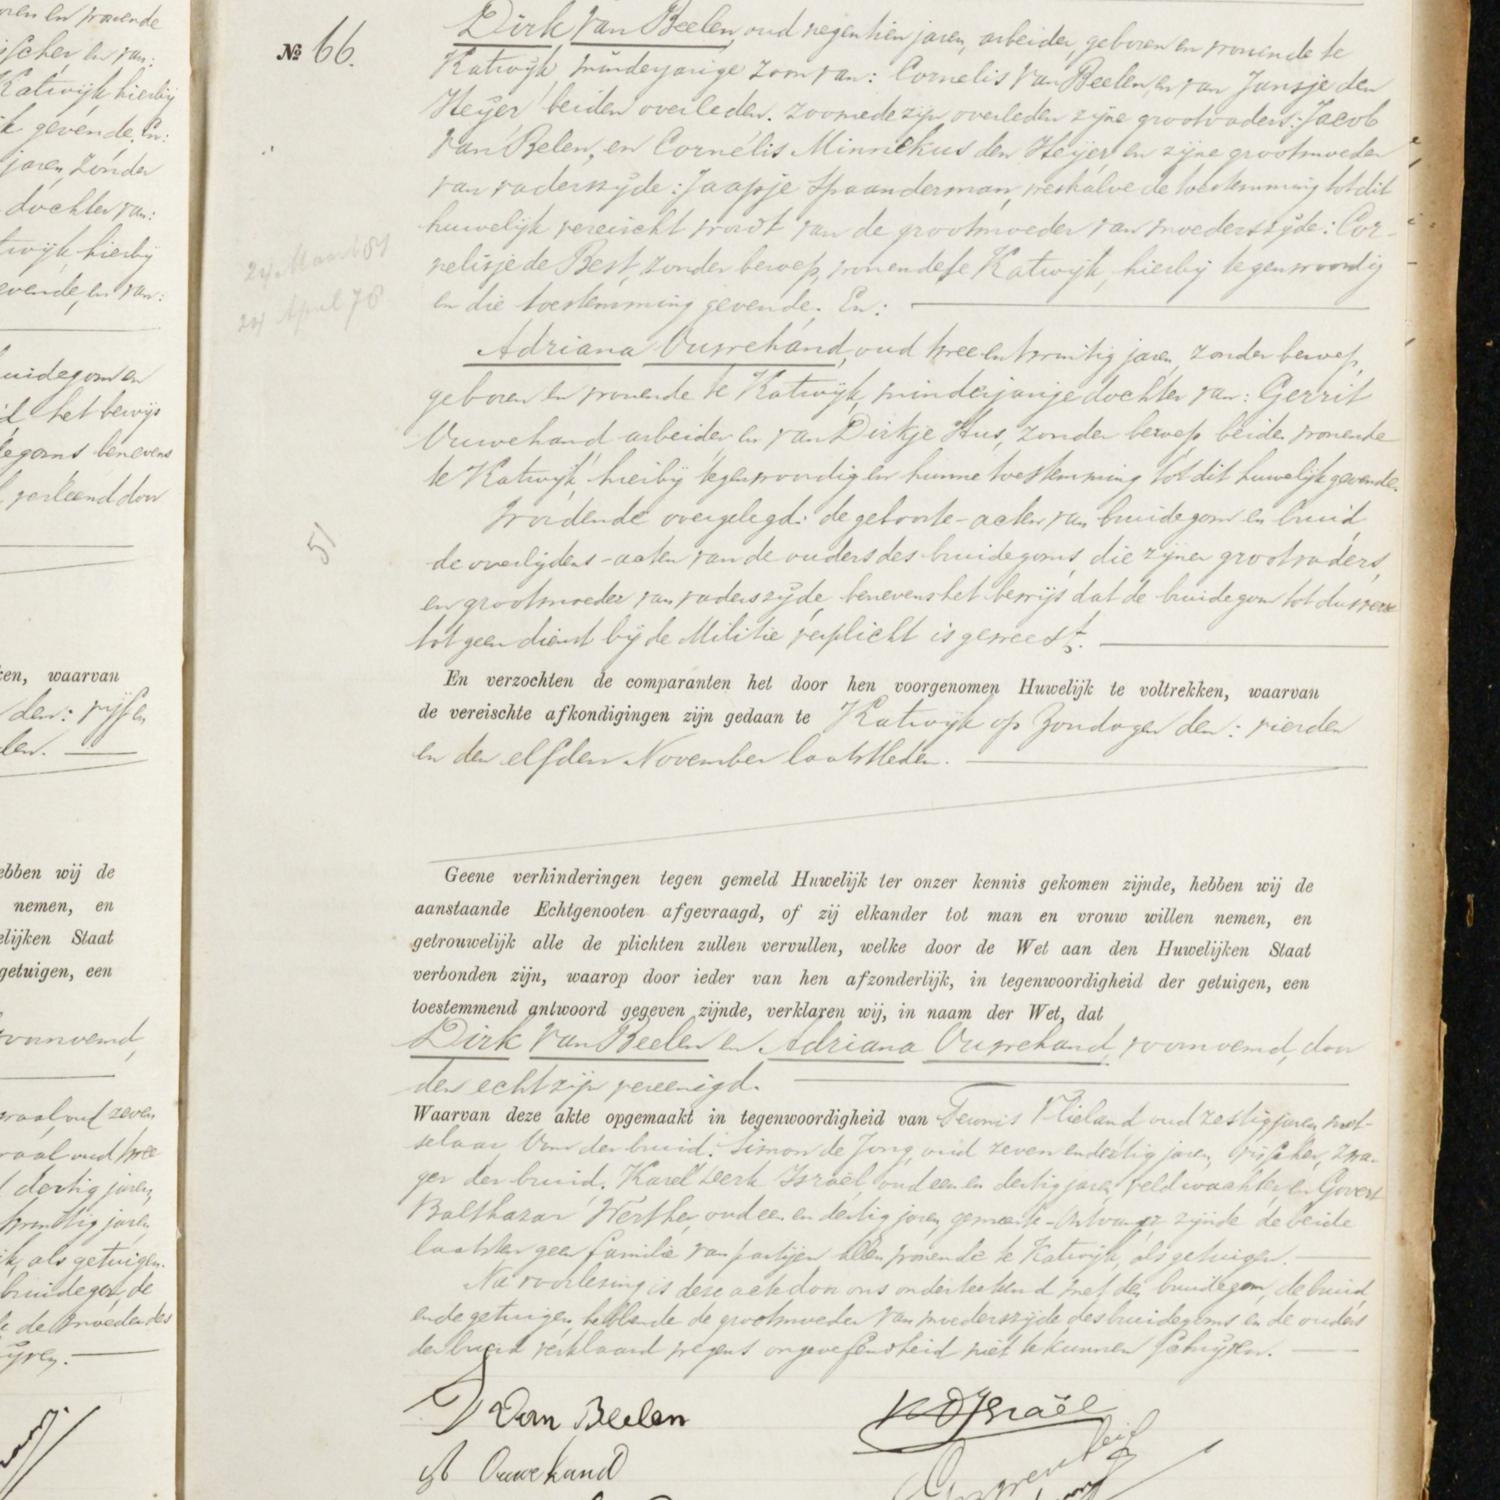 № 66.
Dirk van Beelen, oud negentien jaren, arbeider, geboren en wonende te
Katwijk, minderjarige zoon van: Cornelis van Beelen, en van Jansje den
Heijer, beiden overleden. zoomede zijn overleden zijne grootvaders: Jacob
van Belen, en Cornelis Minnekus den Heijer, en zijne grootmoeder
van vaderszijde: Jaapje Spaanderman, weshalve de toestemming tot dit
huwelijk vereischt wordt van de grootmoeder van moederszijde: Cor-
nelisje de Best, zonder beroep, wonende te Katwijk, hierbij tegenwoordig
en die toestemming gevende. En:
24 Maart 59
24 April 78
Adriana Ouwehand, oud twee en twintig jaren, zonder beroep,
geboren en wonende te Katwijk, minderjarige dochter van: Gerrit
Ouwehand, arbeider en van Dirkje Hus, zonder beroep, beiden wonende
te Katwijk, hierbij tegenwoordig en hunne toestemming tot dit huwelijk gevende.
51
Wordende overgelegd: de geboorte-acten van bruidegom en bruid,
de overlijdens-acten van de ouders des bruidegoms, die zijner grootvaders,
en grootmoeder van vaderszijde, benevens het bewijs dat de bruidegom tot dusverre
tot geen dienst bij de Militie verplicht is geweest.
En verzochten de comparanten het door hen voorgenomen Huwelijk te voltrekken, waarvan
de vereischte afkondigingen zijn gedaan te Katwijk op Zondagen den: vierden
en den elfden November laatstleden.
Geene verhinderingen tegen gemeld Huwelijk ter onzer kennis gekomen zijnde, hebben wij de
aanstaande Echtgenooten afgevraagd, of zij elkander tot man en vrouw willen nemen, en
getrouwelijk alle de plichten zullen vervullen, welke door de Wet aan den Huwelijken Staat
verbonden zijn, waarop door ieder van hen afzonderlijk, in tegenwoordigheid der getuigen, een
toestemmend antwoord gegeven zijnde, verklaren wij, in naam der Wet, dat
Dirk van Beelen en Adriana Ouwehand, voornoemd, door
den echt zijn vereenigd.
Waarvan deze akte opgemaakt in tegenwoordigheid van Teunis Vlieland oud zestig jaren, met-
selaar, Oom der bruid. Simon de Jong, oud zeven en dertig jaren, visscher, zwa-
ger der bruid. Karel Derk Israël, oud een en dertig jaren, veldwachter en Govert
Balthazar Werther, oud een en dertig jaren, gemeente-Ontvanger zijnde de beide
laatsten geen familie van partijen allen wonende te Katwijk, als getuigen.
Na voorlezing is deze acte door ons onderteekend met den bruidegom, de bruid
en de getuigen, hebbende de grootmoeder van moederszijde des bruidegoms en de ouders
der bruid verklaard wegens ongeoefendheid niet te kunnen schrijven.
D van Beelen
K D Israël
A Ouwehand